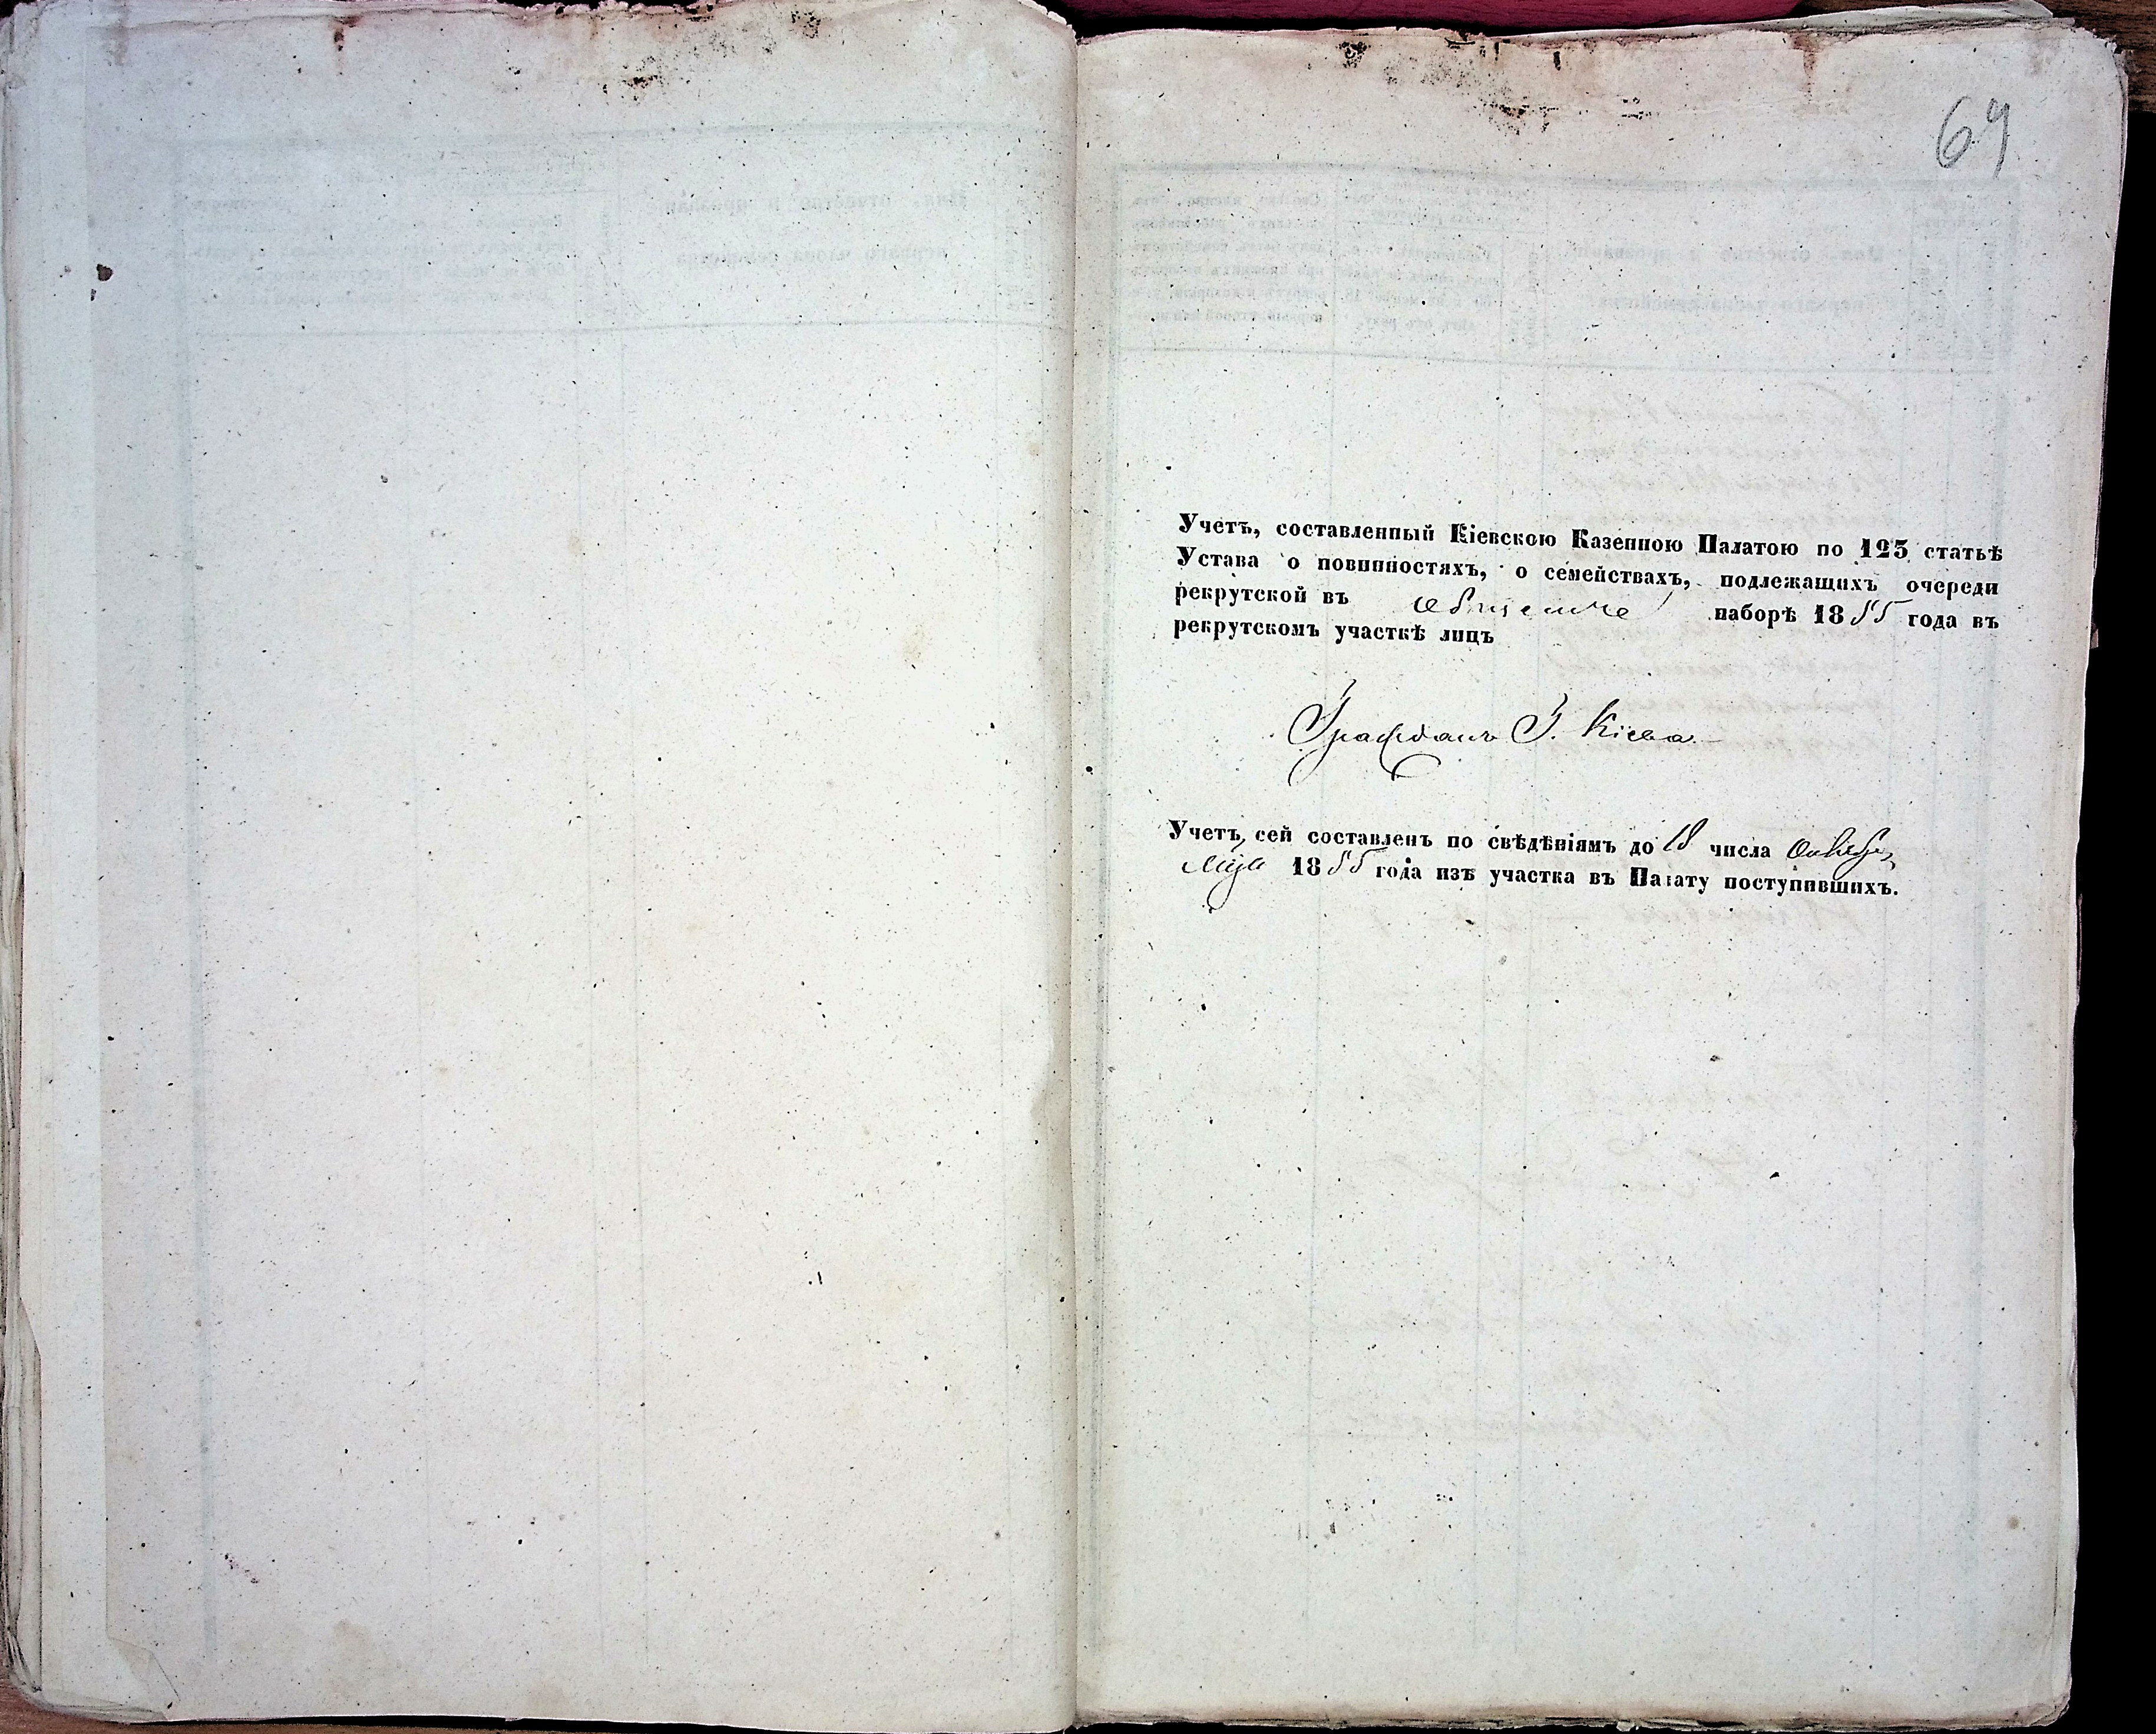 69
Учетъ, составленный Кіевскою Казенною Палатою по 123 статьѣ
Устава о повинностяхъ, о семействахъ, подлежащихъ очереди
рекрутской въ наборѣ 1855 года въ
рекрутскомъ участкѣ лицъ
Гражданъ Г. Кіева
Учетъ, сей составленъ по свѣдѣніямъ до 18 числа Октября
1855 года изъ участка въ Палату поступившихъ.